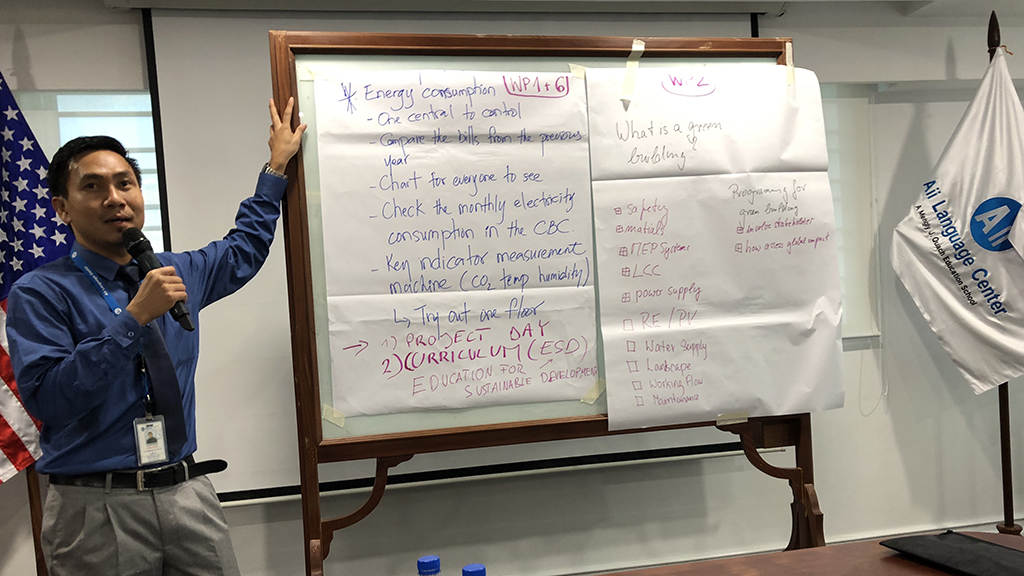 * Energy consumption WP1+6
- One central to control
- Compare the bills from the previous
year
- Chart for everyone to see
- Check the monthly electricity
consumption in the CBC
- Key indicator measurement
machine (CO, temp humidity)
↳ Try out one floor
→ 1) PROJECT DAY
2) CURRICULUM (ESD)
EDUCATION FOR
SUSTAINABLE DEVELOPMENT
WP2
What is a green
building
safety
matials
MEP Systems
LCC
power supply
RE/PV
Water Supply
Lanscape
Working flow
Maintainance
Programming for
green building
involve stakeholder
how assess global impact
Aii Language Center
Aii